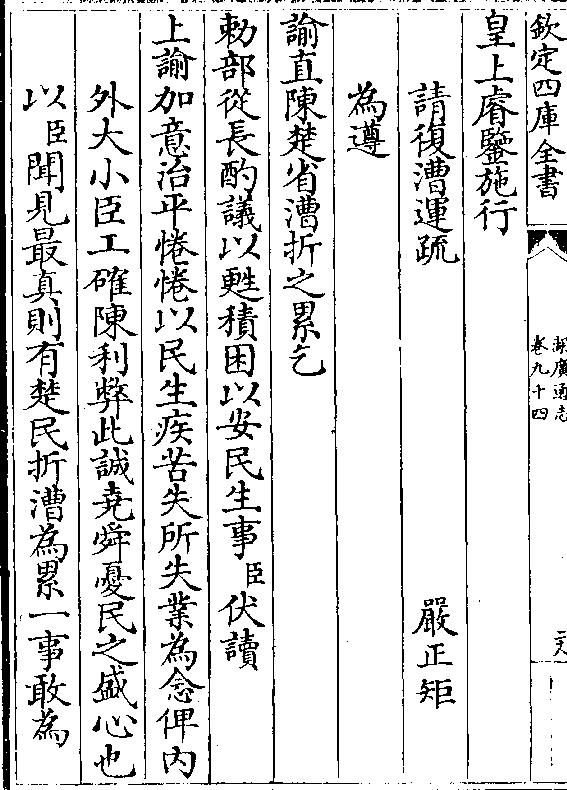 欽定四庫全書
湖廣通志
卷九十四
皇上睿鑒施行
請復漕運疏 嚴正矩
為遵
諭直陳楚省漕折之累乞
勅部從長酌議以甦積困以安民生事臣伏讀
上諭加意治平惓惓以民生疾苦失所失業為念俾內
外大小臣工確陳利弊此誠堯舜憂民之盛心也
以臣聞見最真則有楚民折漕為累一事敢為